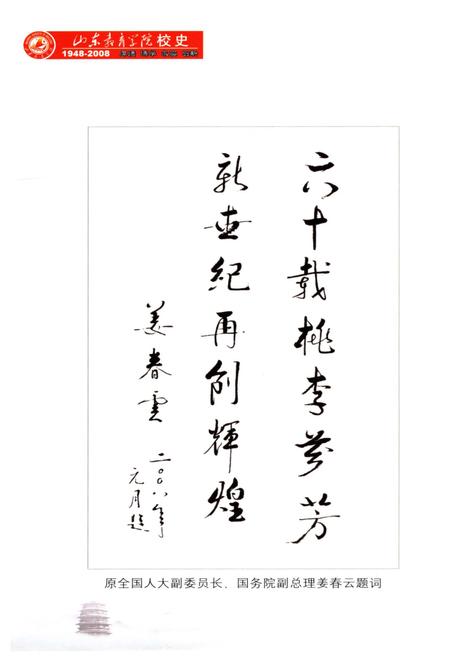 山东教育学院校史
1948-2008
六十载桃李芬芳
新世紀再创輝煌
姜春雲
二〇〇八年
元月題
原全国人大副委员长、国务院副总理姜春云题词